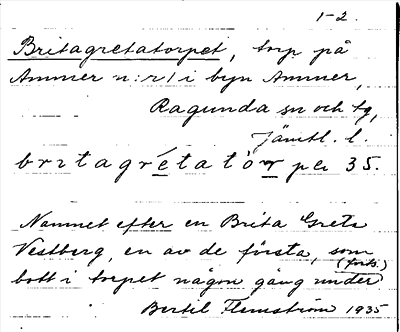 1-2.
Britagretatorpet, torp på
Ammer n:r 1 i byn Ammer,
Ragunda sn och tg,
Jämtl. l.
britagrètatòrpeı 35.
Namnet efter en Brita Greta
Vestberg, en av de första, som
bott i torpet någon gång under
(forts)
Bertil Flemström 1935